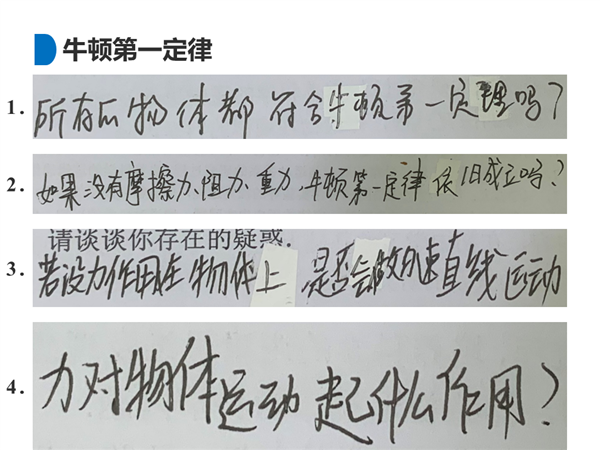 牛顿第一定律
1. 所有的物体都符合牛顿第一定理吗？
2. 如果没有摩擦力、阻力、重力，牛顿第一定律依旧成立吗？
请谈谈你存在的疑惑.
3. 若没力作用在物体上 是否会做匀速直线运动
4. 力对物体运动起什么作用？